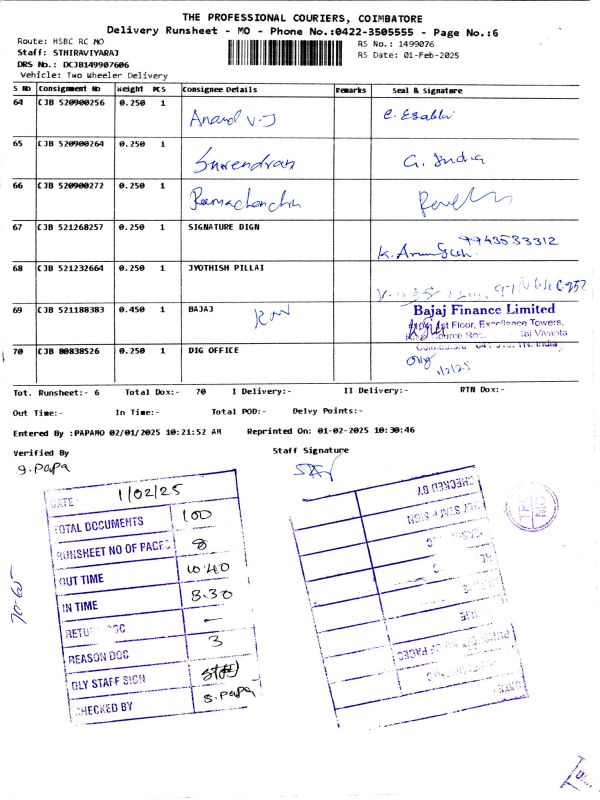 THE PROFESSIONAL COURIERS, COIMBATORE
Delivery Runsheet - MO - Phone No.:0422-3505555 - Page No.:6
Route: HSBC RC MO
RS No.: 1499076
Staff: STHIRAVIYARAJ
RS Date: 01-Feb-2025
DRS No.: DCJB149907606
Vehicle: Two Wheeler Delivery
S No Consignment No Weight PCS Consignee Details Remarks Seal & Signature
64 CJB 520900256 0.250 1 Anand V.J
65 CJB 520900264 0.250 1 Surendran G. India
66 CJB 520900272 0.250 1 Ramachandra
67 CJB 521268257 0.250 1 SIGNATURE DIGN
9943583312
68 CJB 521232664 0.250 1 JYOTHISH PILLAI
69 CJB 521188383 0.450 1 BAJAJ
Bajaj Finance Limited
1st Floor, Excellence Towers,
70 CJB 80838526 0.250 1 DIG OFFICE
1/2/25
Tot. Runsheet:- 6 Total Dox:- 70 I Delivery:- II Delivery:- RTN Dox:-
Out Time:- In Time:- Total POD:- Delvy Points:-
Entered By :PAPAMO 02/01/2025 10:21:52 AM Reprinted On: 01-02-2025 10:30:46
Verified By Staff Signature
S.Papa
DATE 1/02/25
TOTAL DOCUMENTS 100
RUNSHEET NO OF PAGES 8
OUT TIME 10.40
IN TIME 8.30
RETURN DOC —
REASON DOC 3
DLY STAFF SIGN
CHECKED BY S.Papa
CHECKED BY
DLY STAFF SIGN
70-65